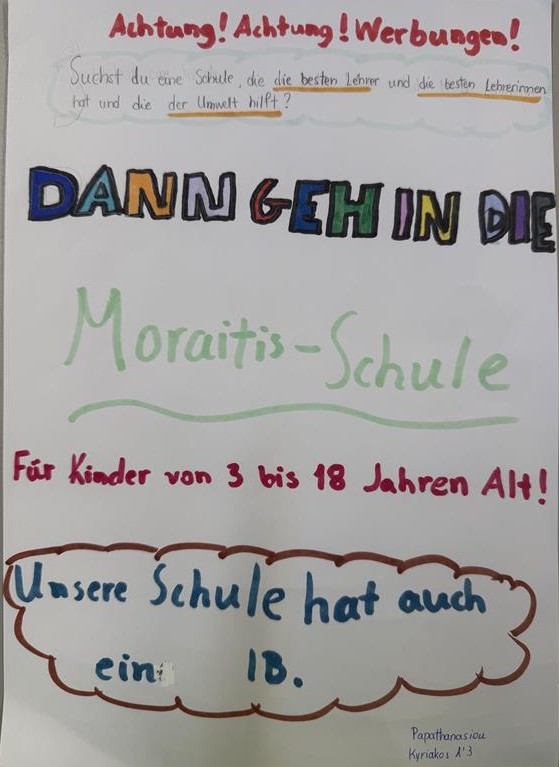 Achtung! Achtung! Werbungen!
Suchst du eine Schule, die die besten Lehrer und die besten Lehrerinnen
hat und die der Umwelt hilft?
DANN GEH IN DIE
Moraitis-Schule
Für Kinder von 3 bis 18 Jahren Alt!
Unsere Schule hat auch
ein IB.
Papathanasiou
Kyriakos Α'3